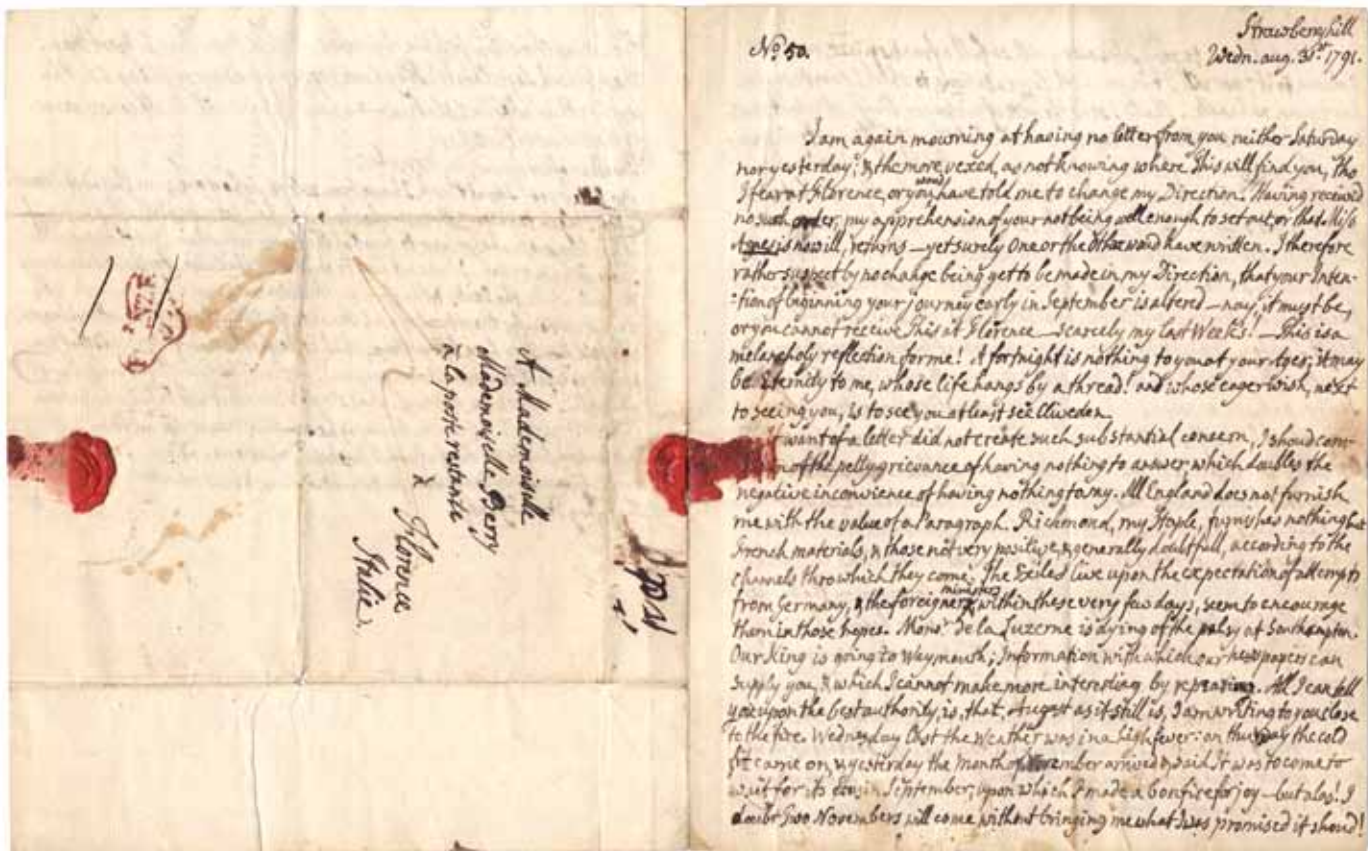 A Mademoiselle
Mademoiselle Berry
à la poste restante
à
Florence
Italie.
No. 50.
Strawberryhill
Wedn. aug. 31st. 1791.
I am again mourning at having no letter from you neither Saturday
nor yesterday; & the more vexed, as not knowing where This will find you, tho
I fear at Florence, or you woud have told me to change my Direction. Having received
no such order, my apprehension of your not being well enough to set out, or that Miss
Agnes is now ill, returns — yet surely One or the Other woud have written. I therefore
rather suspect by no change being yet to be made in my Direction, that your Inten-
-tion of beginning your journey early in September is altered — nay, it must be,
or you cannot receive This at Florence — scarcely my last Week's! — This is a
melancholy reflection for me! A fortnight is nothing to you at your Ages; it may
be Eternity to me, whose life hangs by a thread! and whose eager wish, next
to seeing you, is to see you at least see Cliveden.
want of a letter did not create such substantial concern, I shoud com-
of the petty grievance of having nothing to answer, which doubles the
negative inconvience of having nothing to say. All England does not furnish
me with the value of a Paragraph. Richmond, my Staple, furnishes nothing but
French materials, & those not very positive, & generally doubtfull, according to the
channels thro which they come. The Exiled live upon the expectation of attempts
from Germany, & the foreign ministers within these very few days, seem to encourage
them in those hopes. Monsr. de la Luzerne is dying of the palsy at Southampton.
Our King is going to Weymouth; Information with which our newspapers can
supply you, & which I cannot make more interesting by repeating. All I can tell
you upon the best authority, is, that, August as it still is, I am writing to you close
to the fire. Wednesday last the Weather was in a high fever: on thursday the cold
fit came on, & yesterday the Month of November arrived & said It was to come to
wait for its in September; upon which I made a bonfire for joy — but alas! I
doubt two Novembers will come without bringing me what I was promised it shoud!